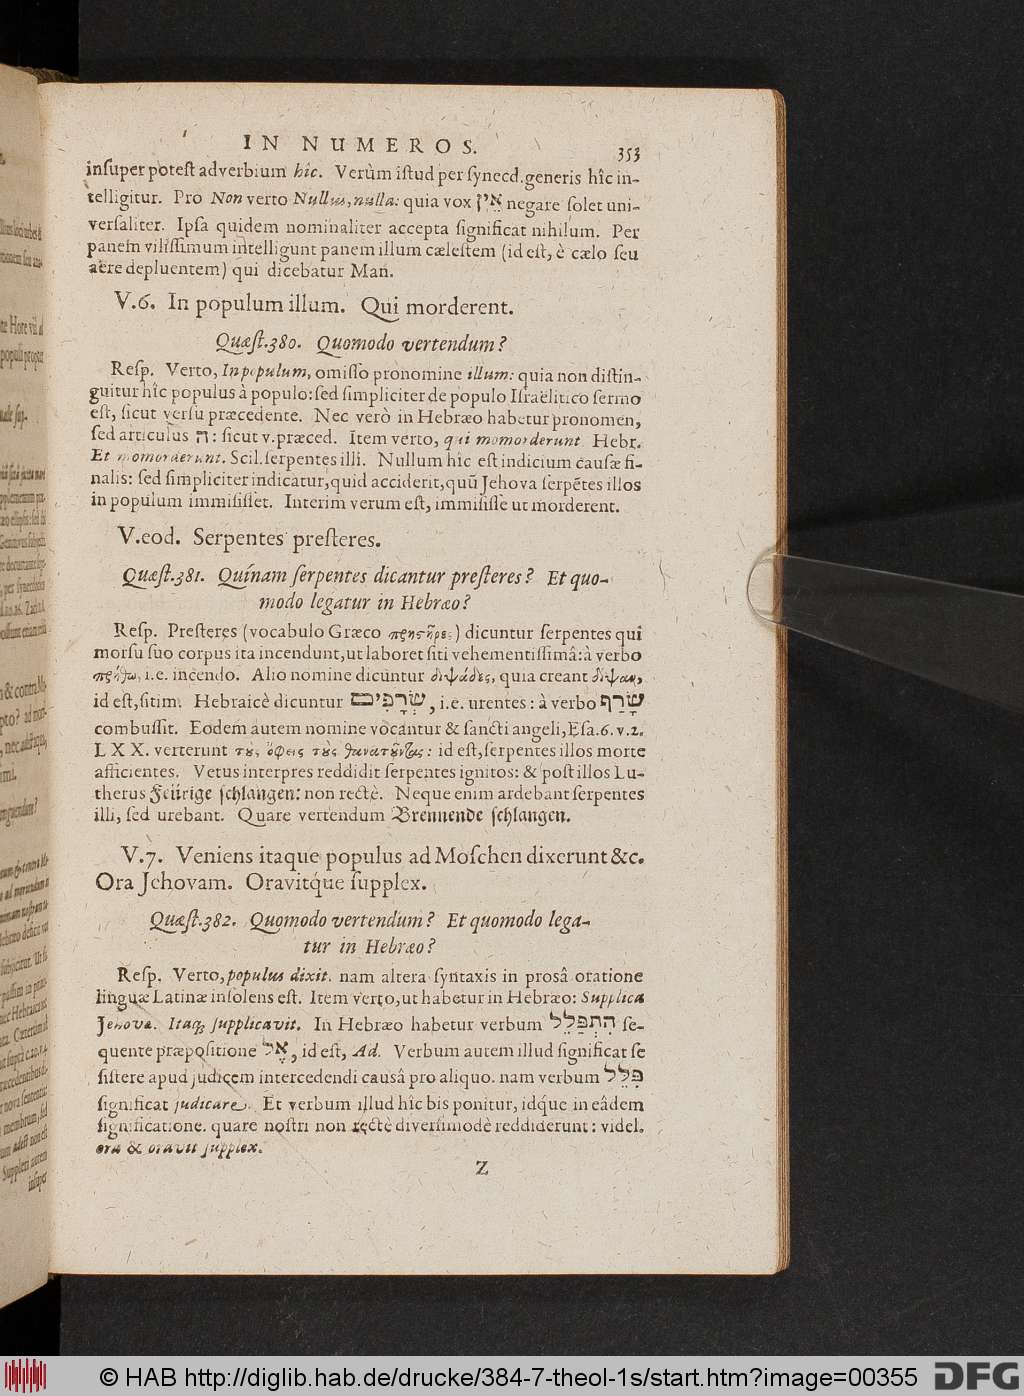 IN NUMEROS. 353
insuper potest adverbium hîc. Verùm istud per synecd. generis hîc in-
telligitur. Pro Non verto Nullus, nulla: quia vox אֵין negare solet uni-
versaliter. Ipsa quidem nominaliter accepta significat nihilum. Per
panem vilissimum intelligunt panem illum cælestem (id est, è cælo seu
aëre depluentem) qui dicebatur Man.
V.6. In populum illum. Qui morderent.
Quæst.380. Quomodo vertendum?
Resp. Verto, In populum, omisso pronomine illum: quia non distin-
guitur hîc populus à populo: sed simpliciter de populo Israëlitico sermo
est, sicut versu præcedente. Nec verò in Hebræo habetur pronomen,
sed articulus ה: sicut v. præced. Item verto, qui momorderunt. Hebr.
Et momorderunt. Scil. serpentes illi. Nullum hîc est indicium causæ fi-
nalis: sed simpliciter indicatur, quid acciderit, quũ Jehova serpẽtes illos
in populum immisisset. Interim verum est, immisisse ut morderent.
V.eod. Serpentes presteres.
Quæst.381. Quínam serpentes dicantur presteres? Et quo-
modo legatur in Hebræo?
Resp. Presteres (vocabulo Græco πρηστῆρες) dicuntur serpentes qui
morsu suo corpus ita incendunt, ut laboret siti vehementissimâ: à verbo
πρήθω, i.e. incendo. Alio nomine dicuntur διψάδες, quia creant δίψαν,
id est, sitim. Hebraicè dicuntur שְׂרָפִים, i.e. urentes: à verbo שָׂרַף
combussit. Eodem autem nomine vocantur & sancti angeli, Esa.6.v.2.
LXX. verterunt τοὺς ὄφεις τοὺς θανατοῦντας: id est, serpentes illos morte
afficientes. Vetus interpres reddidit serpentes ignitos: & post illos Lu-
therus Feürige schlangen: non rectè. Neque enim ardebant serpentes
illi, sed urebant. Quare vertendum Brennende schlangen.
V.7. Veniens itaque populus ad Moschen dixerunt &c.
Ora Jehovam. Oravitq́ue supplex.
Quæst.382. Quomodo vertendum? Et quomodo lega-
tur in Hebræo?
Resp. Verto, populus dixit. nam altera syntaxis in prosâ oratione
linguæ Latinæ insolens est. Item verto, ut habetur in Hebræo: Supplica
Jehovæ. Itaq; supplicavit. In Hebræo habetur verbum הִתְפַּלֵּל se-
quente præpositione אֶל, id est, Ad. Verbum autem illud significat se
sistere apud judicem intercedendi causâ pro aliquo. nam verbum פִּלֵּל
significat judicare. Et verbum illud hîc bis ponitur, idq́ue in eâdem
significatione. quare nostri non rectè diversimodè reddiderunt: videl.
ora & oravit supplex.
Z
© HAB http://diglib.hab.de/drucke/384-7-theol-1s/start.htm?image=00355
DFG